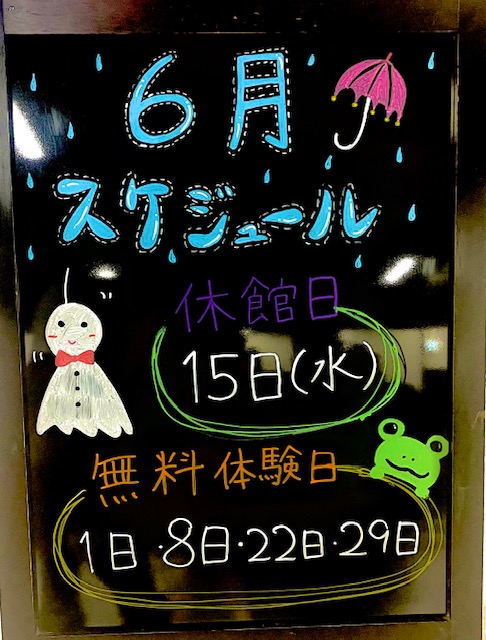 6月
スケジュール
休館日
15日(水)
無料体験日
1日・8日・22日・29日